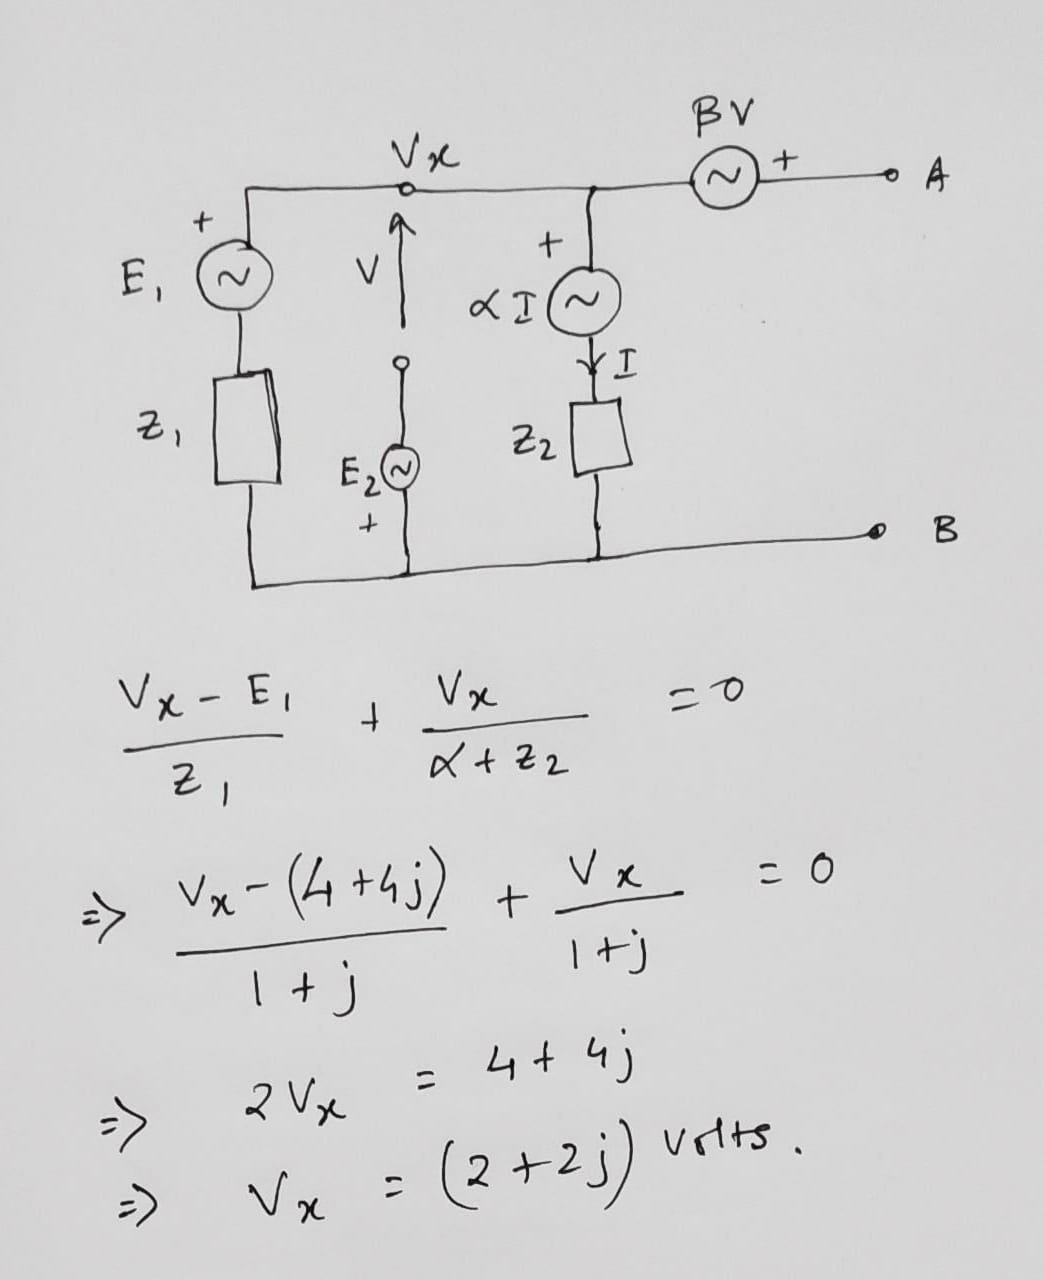 βV
Vx
+ A
+
E₁
V
+
αI
I
Z₁
Z₂
E₂
+
B
Vx - E₁ / Z₁ + Vx / α + Z₂ = 0
⇒ Vx - (4 + 4j) / 1 + j + Vx / 1 + j = 0
⇒ 2Vx = 4 + 4j
⇒ Vx = (2 + 2j) volts.